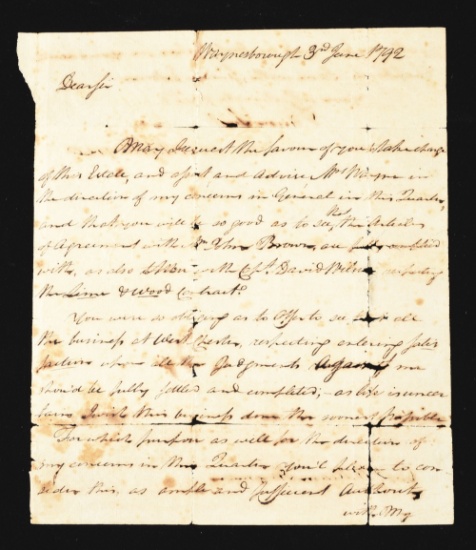 Waynesborough 3rd June 1792
Dear Sir
May I request the favour of you to take charge
of this Estate, and assist and Advise Mrs Wayne in
the direction of my concerns in General in this Quarter,
and that you will be so good as to see that the Articles
of Agreement with Mr John Brown, are fully complied
with, as also those with Capt. David Wilson respecting
the Lime & wood contract.
You were so obliging as to offer to see that all
the business at West Chester, respecting entering satis
faction where all the Judgments against me
should be fully settled and compleated; as life is uncer
tain I wish this business done the soonest possible
For which purpose as well for the direction of
my concerns in this Quarter You'l please to con
sider this, as ample and sufficient Authority
with My